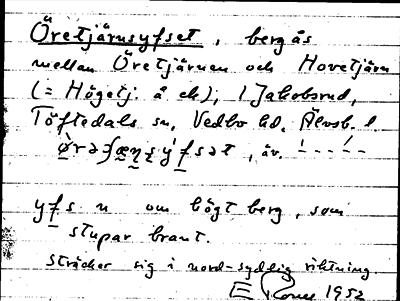 Öretjärnsyfset, bergås
mellan Öretjärnen och Hovetjärn
(= Högetj. å ek), i Jakobsrud,
Töftedals sn, Vedbo hd, Älvsb. l.
yfs n om högt berg, som
stupar brant.
sträcker sig i nord-sydlig riktning.
E 1952